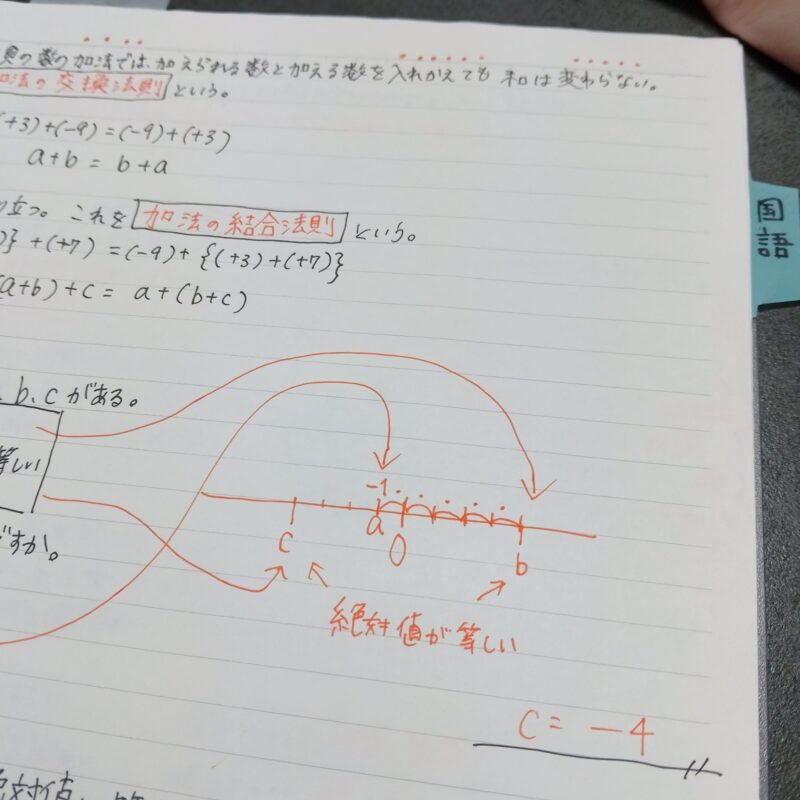 負の数の加法では、加えられる数と加える数を入れかえても和は変わらない。
加法の交換法則という。
(+3)+(-9)=(-9)+(+3)
a+b = b+a
り立つ。これを加法の結合法則という。
)}+(+7)=(-9)+{(+3)+(+7)}
(a+b)+c= a+(b+c)
国語
b、cがある。
等しい
ですか。
-1
a
0
b
c
絶対値が等しい
c= -4
絶対値